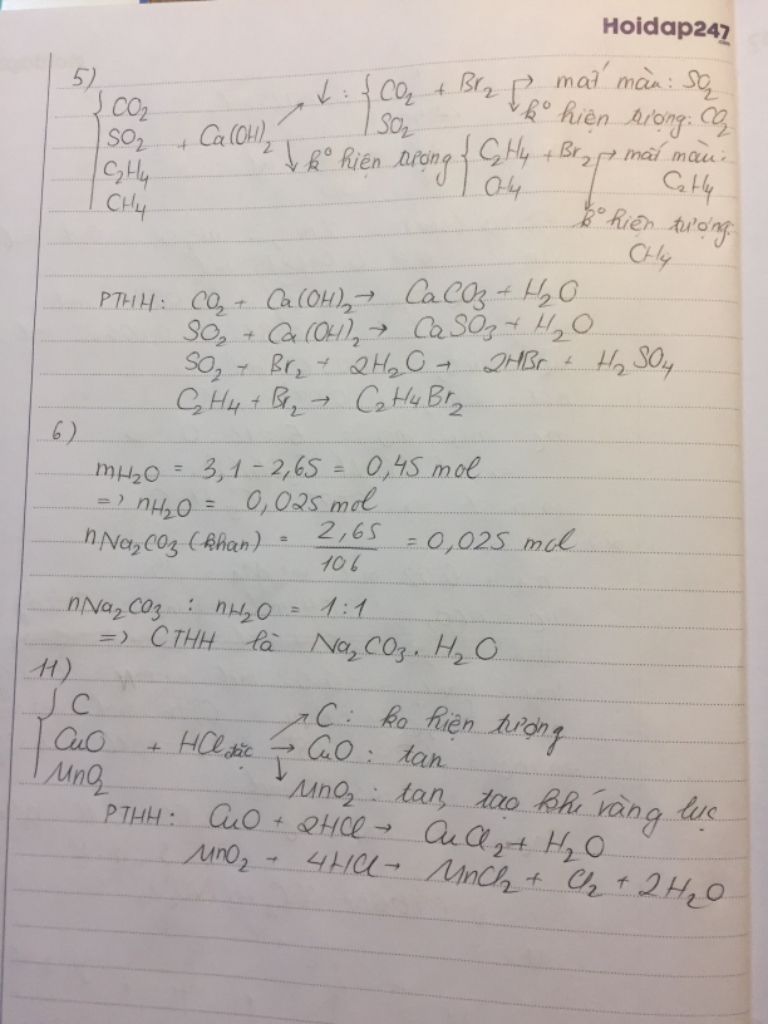 Hoidap247
5)
CO₂
SO₂ + Ca(OH)₂ ↗ ↓ : { CO₂ + Br₂ → mất màu: SO₂
C₂H₄ SO₂ ↓ kº hiện tượng: CO₂
CH₄ ↓ kº hiện tượng { C₂H₄ + Br₂ → mất màu:
CH₄ C₂H₄
kº hiện tượng:
CH₄
PTHH: CO₂ + Ca(OH)₂ → CaCO₃ + H₂O
SO₂ + Ca(OH)₂ → CaSO₃ + H₂O
SO₂ + Br₂ + 2H₂O → 2HBr + H₂SO₄
C₂H₄ + Br₂ → C₂H₄Br₂
6)
mH₂O = 3,1 - 2,65 = 0,45 mol
=> nH₂O = 0,025 mol
nNa₂CO₃ (khan) = 2,65/106 = 0,025 mol
nNa₂CO₃ : nH₂O = 1:1
=> CTHH là Na₂CO₃. H₂O
11)
C ↗ C: ko hiện tượng
CuO + HCl đặc → CuO: tan
MnO₂ ↓ MnO₂: tan, tạo khí vàng lục
PTHH: CuO + 2HCl → CuCl₂ + H₂O
MnO₂ + 4HCl → MnCl₂ + Cl₂ + 2H₂O